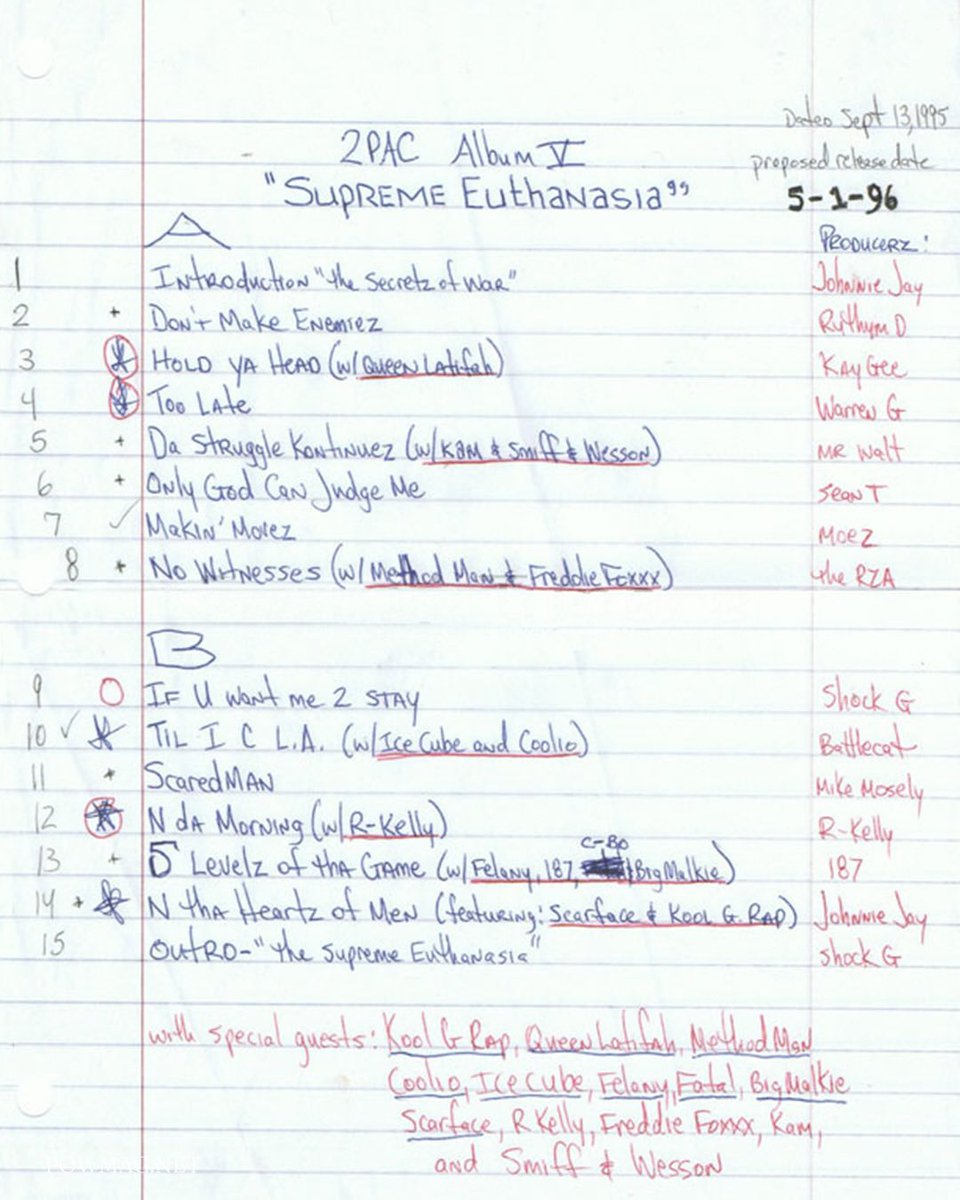 Dated Sept 13, 1995
2PAC Album V
proposed release date
"Supreme Euthanasia"
5-1-96
A
Producerz:
1 Introduction "the Secretz of War" Johnnie Jay
2 + Don't Make Enemiez Ruthym D
3 Hold ya Head (w/ Queen Latifah) Kay Gee
4 Too Late Warren G
5 + Da Struggle Kontinuez (w/ Kam & Smiff & Wesson) Mr Walt
6 + Only God Can Judge Me Sean T
7 ✓ Makin' Movez Moez
8 + No Witnesses (w/ Method Man & Freddie Foxxx) the RZA
B
9 If U want me 2 stay Shock G
10 ✓ Til I C L.A. (w/ Ice Cube and Coolio) Battlecat
11 + ScaredMan Mike Mosely
12 N da Morning (w/ R-Kelly) R-Kelly
C-Bo
13 + 5 Levelz of tha Game (w/ Felony, 187, & Big Malkie) 187
14 + N tha Heartz of Men (featuring: Scarface & Kool G. Rap) Johnnie Jay
15 Outro-"the Supreme Euthanasia" Shock G
with special guests: Kool G Rap, Queen Latifah, Method Man
Coolio, Ice Cube, Felony, Fatal, Big Malkie
Scarface, R Kelly, Freddie Foxxx, Kam,
and Smiff & Wesson